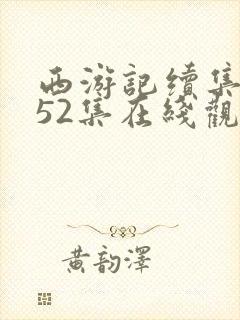 西游記續集
52集在綫觀
黄韵澤